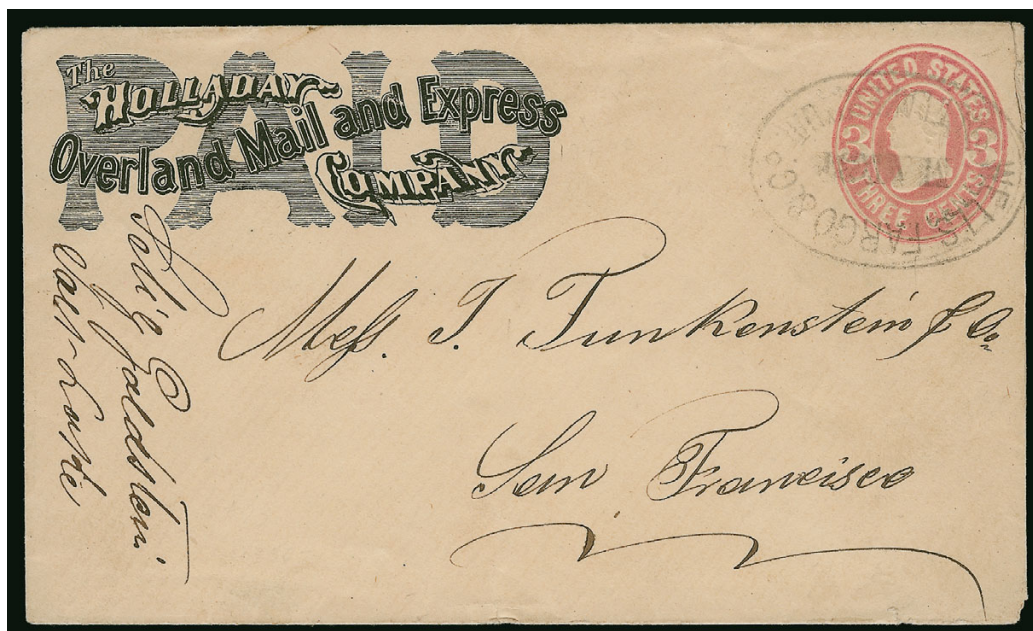 PAID
The
HOLLADAY
Overland Mail and Express
COMPANY
UNITED STATES
3 3
THREE CENTS
WELLS FARGO & Co.
Mess. J. Funkenstein & Co.
San Francisco
Solig Goldstein